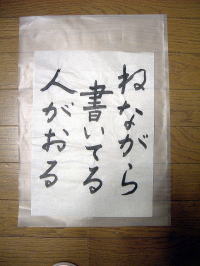 ねながら
書いてる
人がおる